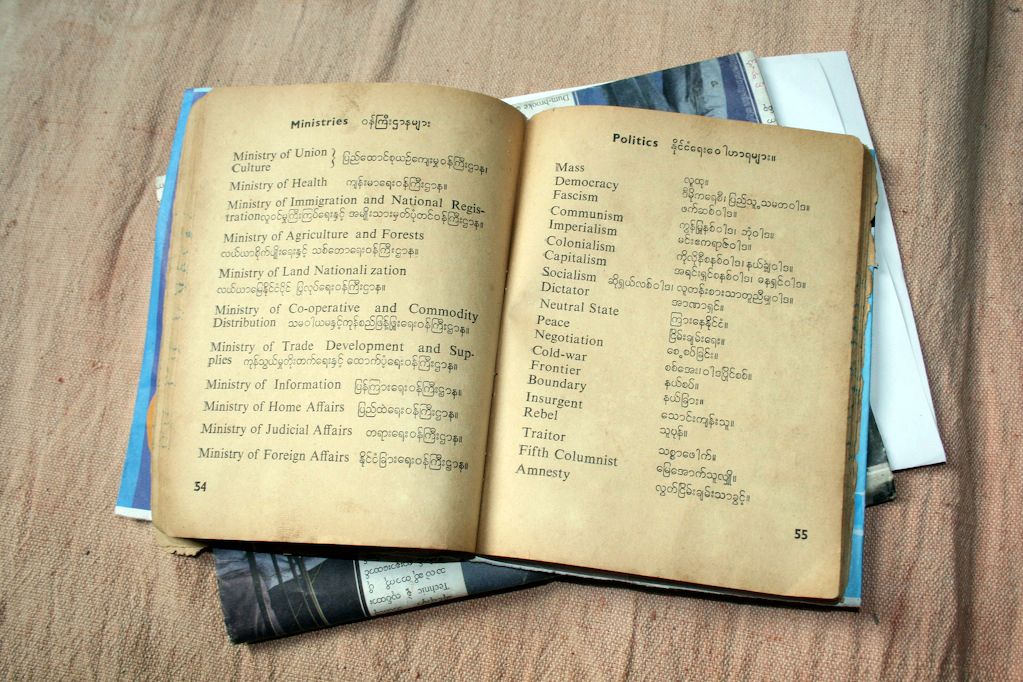 Ministries ဝန်ကြီးဌာနများ
Ministry of Union } ပြည်ထောင်စုယဉ်ကျေးမှုဝန်ကြီးဌာန၊
Culture
Ministry of Health ကျန်းမာရေးဝန်ကြီးဌာန။
Ministry of Immigration and National Regis-
tration လူဝင်မှုကြီးကြပ်ရေးနှင့် အမျိုးသားမှတ်ပုံတင်ဝန်ကြီးဌာန။
Ministry of Agriculture and Forests
လယ်ယာစိုက်ပျိုးရေးနှင့် သစ်တောရေးဝန်ကြီးဌာန။
Ministry of Land Nationali zation
လယ်ယာမြေနိုင်ငံပိုင် ပြုလုပ်ရေးဝန်ကြီးဌာန။
Ministry of Co-operative and Commodity
Distribution သမဝါယမနှင့်ကုန်စည်ဖြန့်ဖြူးရေးဝန်ကြီးဌာန။
Ministry of Trade Development and Sup-
plies ကုန်သွယ်မှုတိုးတက်ရေးနှင့် ထောက်ပံ့ရေးဝန်ကြီးဌာန။
Ministry of Information ပြန်ကြားရေးဝန်ကြီးဌာန။
Ministry of Home Affairs ပြည်ထဲရေးဝန်ကြီးဌာန။
Ministry of Judicial Affairs တရားရေးဝန်ကြီးဌာန။
Ministry of Foreign Affairs နိုင်ငံခြားရေးဝန်ကြီးဌာန။
54
Politics နိုင်ငံရေးဝေါဟာရများ။
Mass လူထု။
Democracy ဒီမိုကရေစီ၊ ပြည်သူ့သမတဝါဒ။
Fascism ဖက်ဆစ်ဝါဒ။
Communism ကွန်မြူနစ်ဝါဒ၊ ဘုံဝါဒ။
Imperialism မင်းဧကရာဇ်ဝါဒ။
Colonialism ကိုလိုနီစနစ်ဝါဒ၊ နယ်ချဲ့ဝါဒ။
Capitalism အရင်းရှင်စနစ်ဝါဒ၊ ဓနရှင်ဝါဒ။
Socialism ဆိုရှယ်လစ်ဝါဒ၊ လူတန်းစားသာတူညီမျှဝါဒ။
Dictator အာဏာရှင်။
Neutral State ကြားနေနိုင်ငံ။
Peace ငြိမ်းချမ်းရေး။
Negotiation စေ့စပ်ခြင်း။
Cold-war စစ်အေး၊ ဝါဒပြိုင်စစ်။
Frontier နယ်စပ်။
Boundary နယ်ခြား။
Insurgent သောင်းကျန်းသူ။
Rebel သူပုန်။
Traitor သစ္စာဖေါက်။
Fifth Columnist မြေအောက်သူလျှို။
Amnesty လွတ်ငြိမ်းချမ်းသာခွင့်။
55